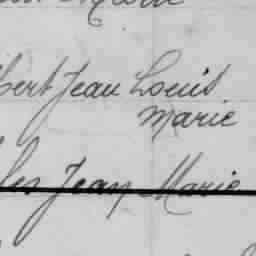 bert Jean Louis
Marie
les Jean Marie